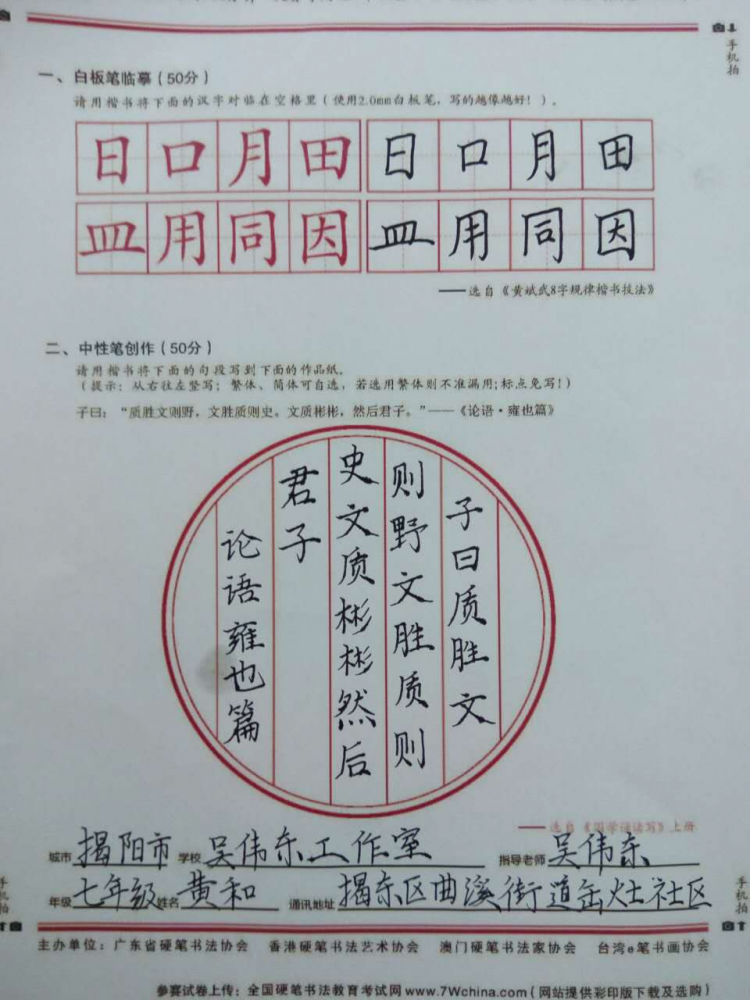 手机拍
一、白板笔临摹（50分）
请用楷书将下面的汉字对临在空格里（使用2.0mm白板笔，写的越像越好！）。
日口月田 日口月田
皿用同因 皿用同因
——选自《黄斌武8字规律楷书技法》
二、中性笔创作（50分）
请用楷书将下面的句段写到下面的作品纸。
（提示：从右往左竖写；繁体、简体可自选，若选用繁体则不准漏用；标点免写！）
子曰：“质胜文则野，文胜质则史。文质彬彬，然后君子。”——《论语·雍也篇》
子曰质胜文
则野文胜质则
史文质彬彬然后
君子
论语雍也篇
——选自《国学诵读写》上册
城市 揭阳市 学校 吴伟东工作室 指导老师 吴伟东
年级 七年级 姓名 黄和 通讯地址 揭东区曲溪街道缶灶社区
手机拍
手机拍
主办单位：广东省硬笔书法协会 香港硬笔书法艺术协会 澳门硬笔书法家协会 台湾e笔书画协会
参赛试卷上传：全国硬笔书法教育考试网 www.7Wchina.com（网站提供彩印版下载及选购）